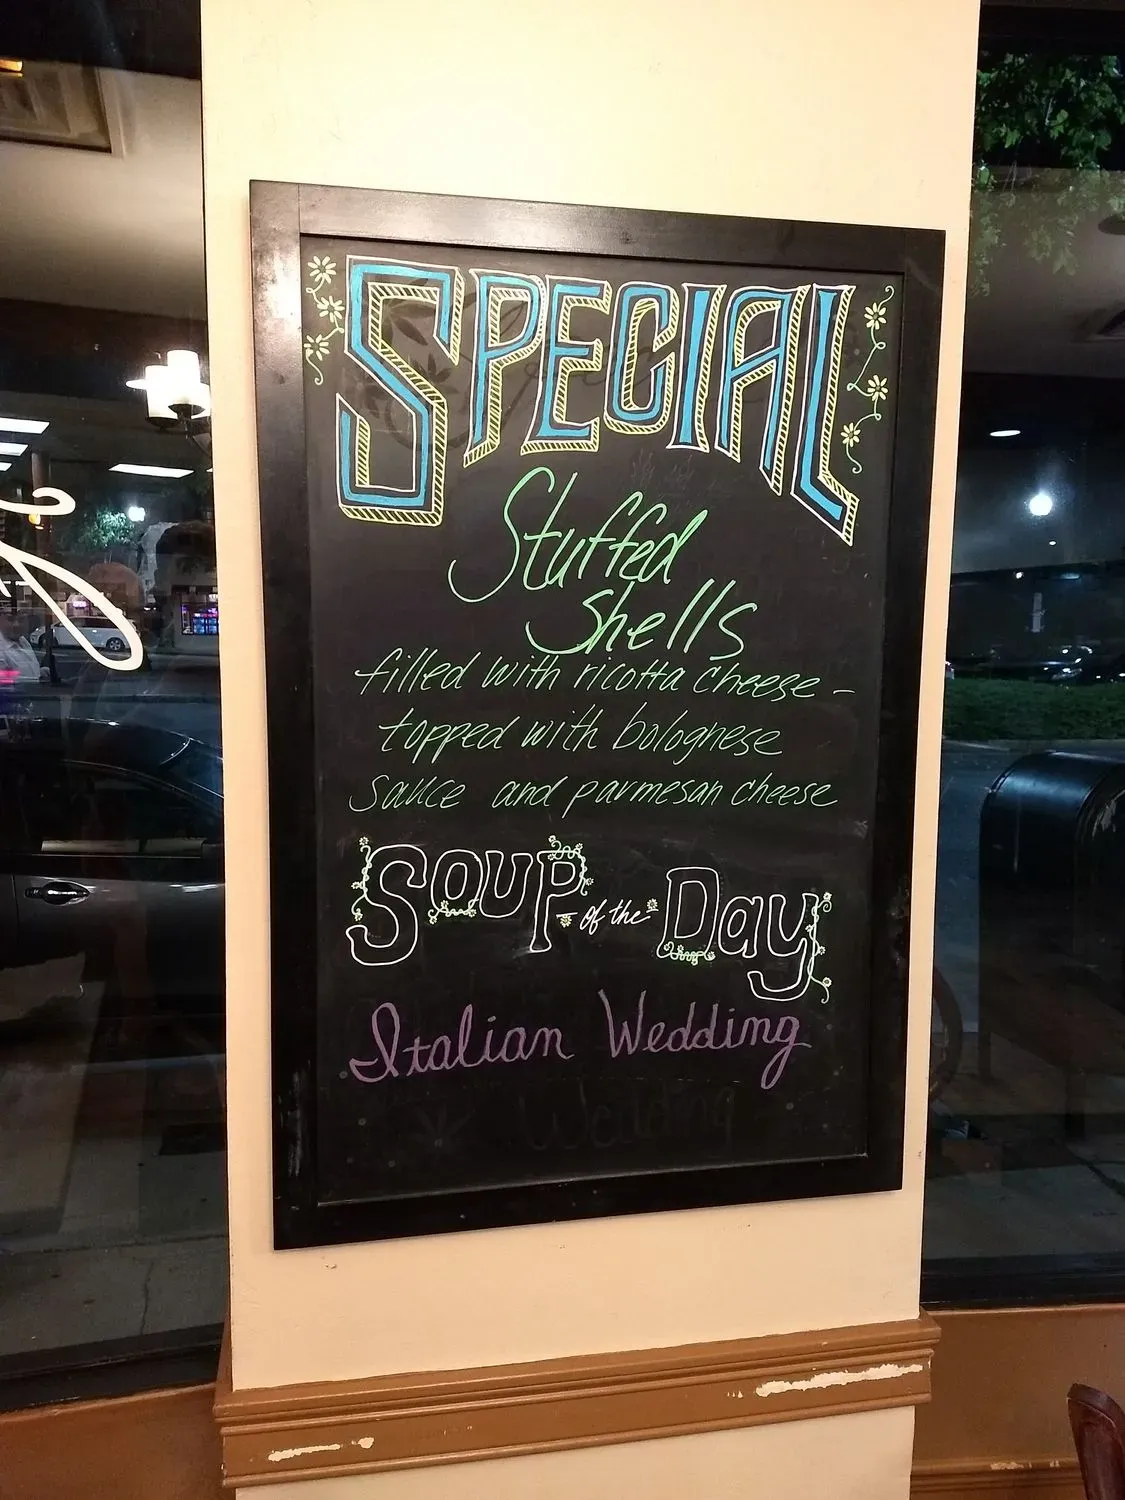 SPECIAL
Stuffed
Shells
filled with ricotta cheese -
topped with bolognese
sauce and parmesan cheese
Soup - of the - Day
Italian Wedding
Wedding